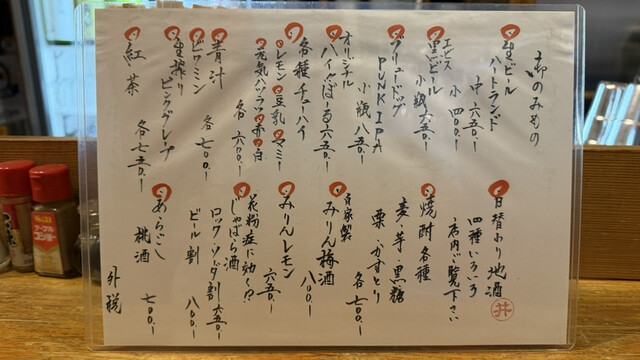 お のみもの
生ビール
ハートランド
中 六五〇.-
小 四〇〇.-
エビス
黒ビール
小瓶 六五〇.-
ブリュードッグ
PUNK IPA
小瓶 八五〇.-
オリジナル
ハイぐばーる 六五〇.-
各種チューハイ
レモン 豆乳 マミー
元気ハツラツ 赤 白
各 六〇〇.-
青汁
ビワミン
各 七〇〇.-
生搾り
ピンクグレープ
紅茶
各 七五〇.-
日替わり地酒
四種いろいろ
店内ご覧下さい
焼酎各種
麦・芋・黒糖
栗・かすとり
各 七〇〇.-
自家製
みりん梅酒
八〇〇.-
みりんレモン
六五〇.-
花粉症に効く!?
じゃばら酒
ロック・ソーダ割 六五〇.-
ビール割 八〇〇.-
あらごし
桃酒
七〇〇.-
外税
井